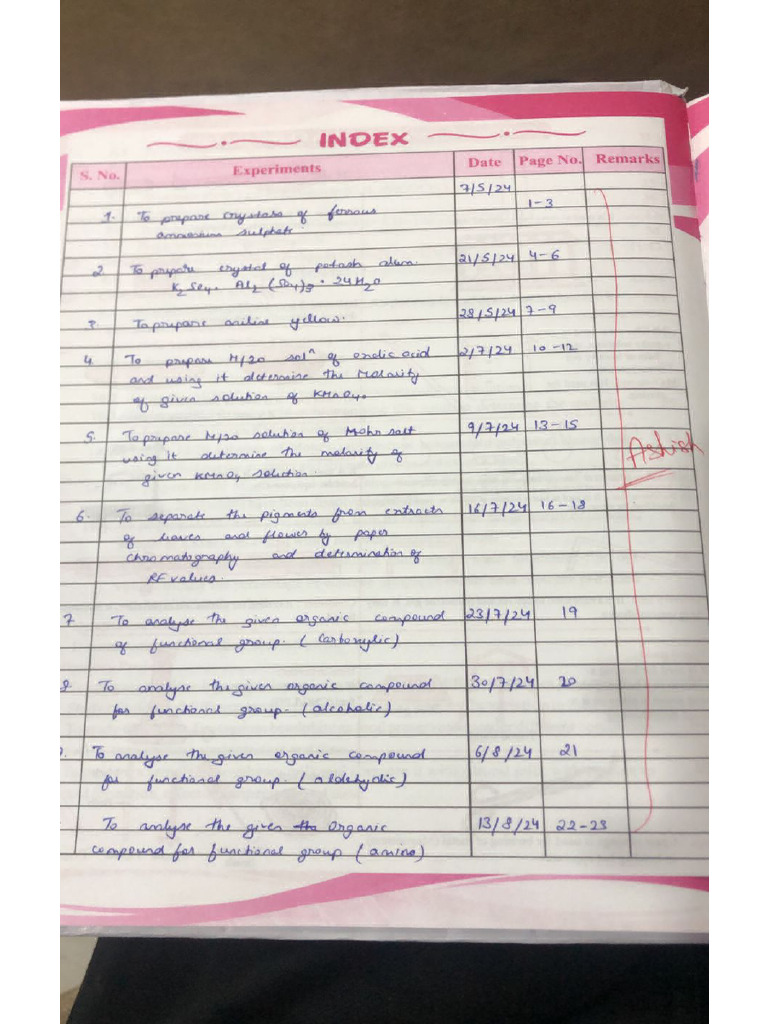 INDEX
S. No. Experiments Date Page No. Remarks
7/5/24
1. To prepare crystals of ferrous 1-3
ammonium sulphate.
2. To prepare crystal of potash alum. 21/5/24 4-6
K2SO4. Al2(SO4)3 · 24H2O
3. To prepare aniline yellow. 28/5/24 7-9
4. To prepare M/20 solⁿ of oxalic acid 2/7/24 10-12
and using it determine the Molarity
of given solution of KMnO4.
5. To prepare M/20 solution of Mohr salt 9/7/24 13-15
using it determine the molarity of
Ashish
given KMnO4 solution.
6. To separate the pigments from extracts 16/7/24 16-18
of leaves and flower by paper
chromatography and determination of
RF values.
7 To analyse the given organic compound 23/7/24 19
of functional group. (Carboxylic)
8. To analyse the given organic compound 30/7/24 20
for functional group. (alcoholic)
. To analyse the given organic compound 6/8/24 21
for functional group. (aldehydic)
To analyse the given the Organic 13/8/24 22-23
compound for functional group (amino)